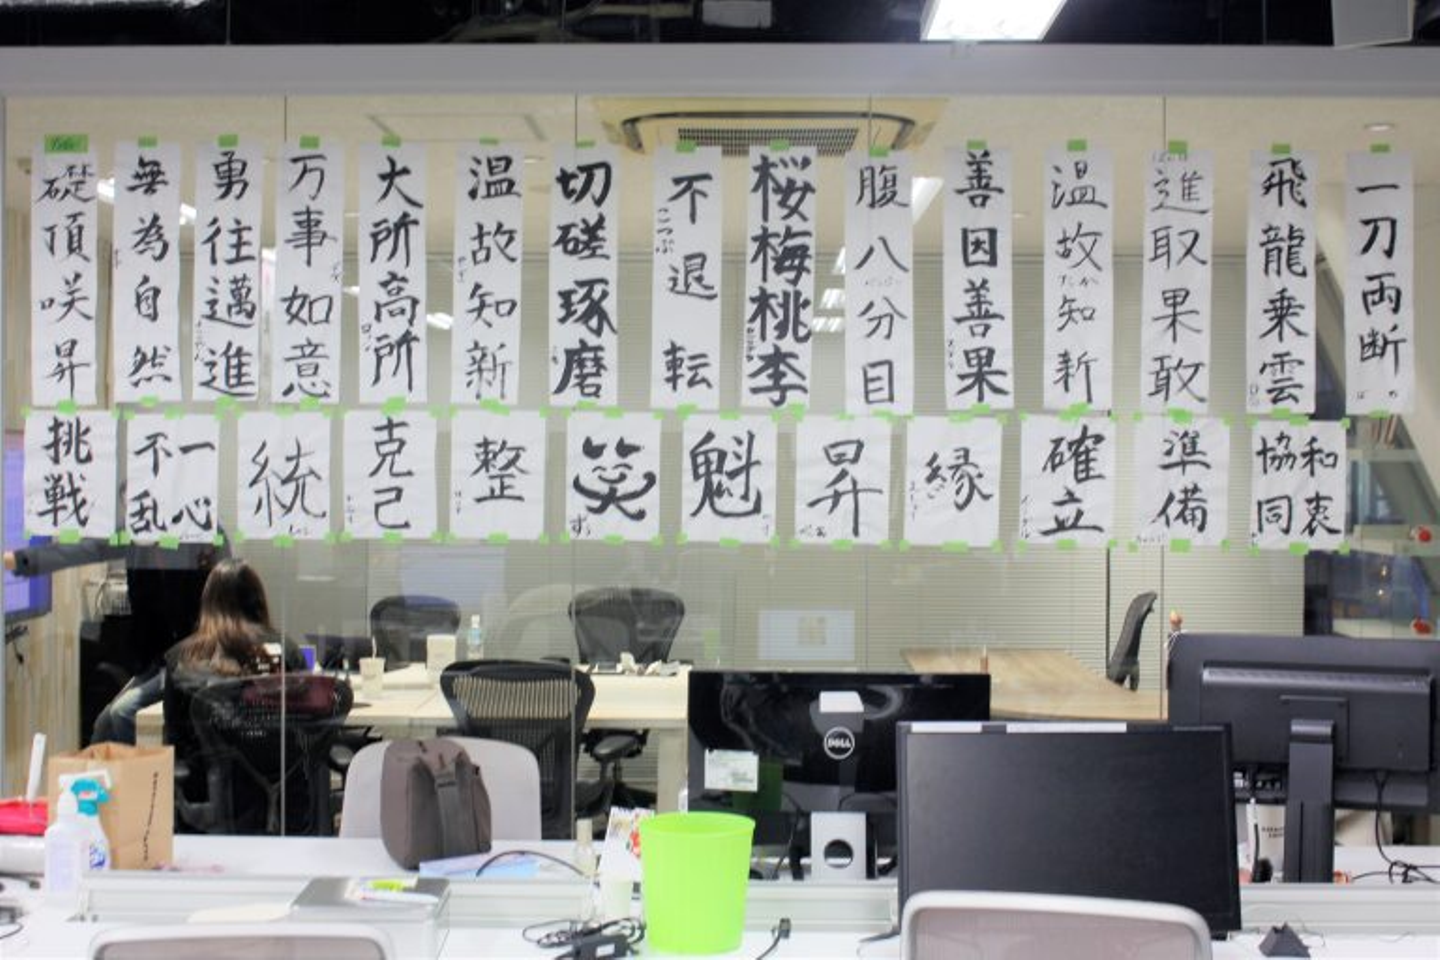 礎頂咲昇
無為自然
勇往邁進
万事如意
大所高所
温故知新
切磋琢磨
不退転
こつぶ
桜梅桃李
腹八分目
善因善果
温故知新
進取果敢
飛龍乗雲
一刀両断
挑戦
一心不乱
統
克己
整
笑
ずぅ
魁
昇
縁
確立
準備
和衷協同
DELL